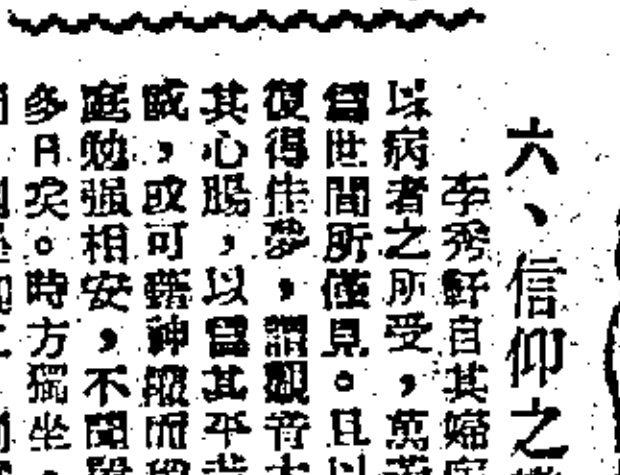 六、信仰之
李秀軒自其婦
以病者之所受，萬
爲世間所僅見。且以
復得佳夢，謂觀音大
其心腸，以爲其平
感，或可藉神權而
庭勉强相安，不聞
多月矣。時方獨坐，